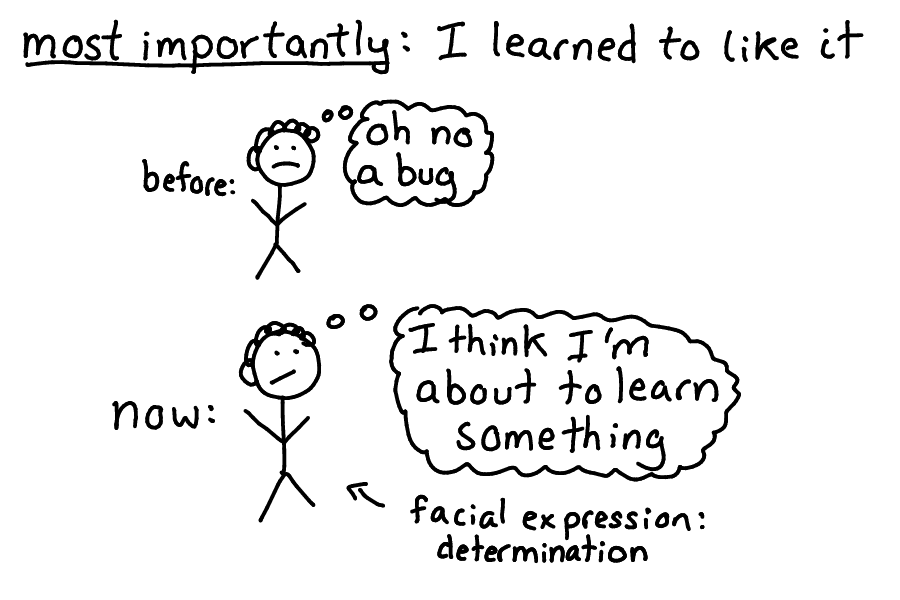 most importantly: I learned to like it
before:
oh no
a bug
now:
I think I'm
about to learn
something
facial expression:
determination